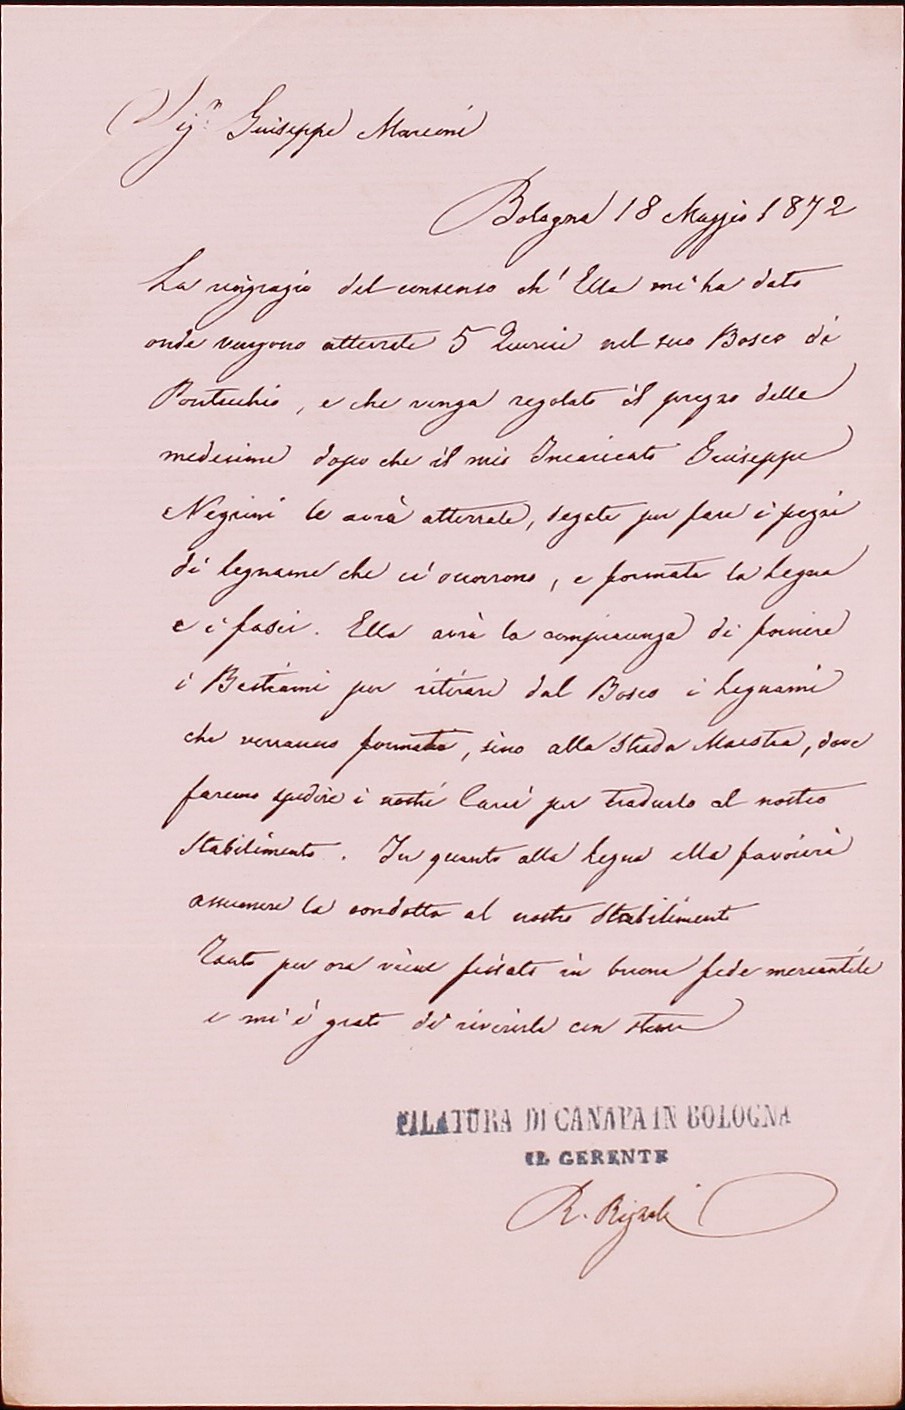 Sig.r Giuseppe Marconi
Bologna 18 Maggio 1872
La ringrazio del consenso ch' Ella mi ha dato
onde vengono atterrate 5 Querci nel suo Bosco di
Pontecchio, e che venga regolato il prezzo delle
medesime dopo che il mio Incaricato Giuseppe
Negrini le avrà atterrate, segate per fare i pezzi
di legname che ci occorrono, e formata la Legna
e i fasci. Ella avrà la compiacenza di fornire
i Bestiami per ritirare dal Bosco i Legnami
che verranno formati, sino alla Strada Maestra, dove
faremo spedire i nostri Carri per tradurlo al nostro
Stabilimento. In quanto alla Legna ella favorirà
assumere la condotta al nostro Stabilimento
Tanto per ora viene fissato in buona fede mercantile
e mi è grato di riverirla con stima
FILATURA DI CANAPA IN BOLOGNA
IL GERENTE
R. Rizzoli